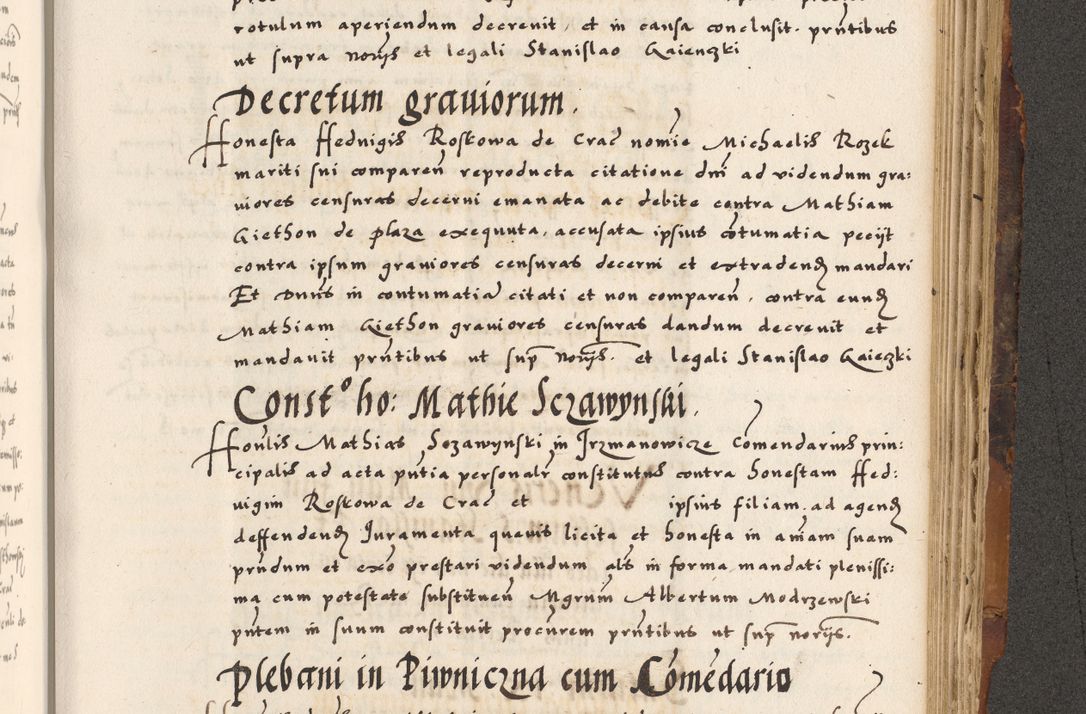 rotulum aperiendum decrevit, et in causa conclusit. prñtibus
ut supra norijs et legali Stanislao Gaienczki
Decretum graviorum.
Honesta Hedvigis Roskowa de Crac nomie Michaelis Rozek
mariti sui compareñ reproducta citatione dni ad videndum gra:
viores censuras decerni emanata ac debite contra Mathiam
Giethon de plaza exequuta, accusata ipsius cõtumatia peciit
contra ipsum graviores censuras decerni et extradend mandari
Et Dnus in contumatia citati et non compareñ, contra eund
Mathiam Giethon graviores censuras dandum decrevit et
mandavit prñtibus ut sup norijs. et legali Stanislao Gaieczki
Constº ho: Mathie Sczawynski.
Houlis Mathias Sozawynski in Irzmanowicze Comendarius prin:
cipalis ad acta pñtia personalr constitutus contra honestam Hed:
vigim Roskowa de Crac et ipsius filiam, ad agend
deffendend Iuramenta quevis licita et honesta in aniam suam
prñdum et exo prestari videndum als in forma mandati plenissi:
ma cum potestate substitueñ Mgrum Albertum Modrzewski
pñtem in suum constituit procurem prñtibus ut sup norijs.
Plebani in Piwniczna cum Comẽdario